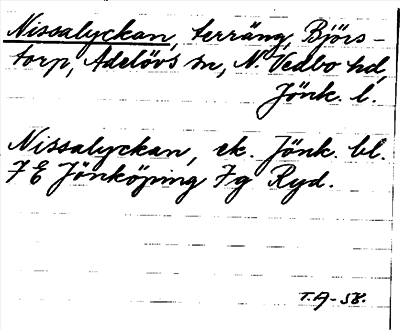 Nissalyckan, terräng, Björs-
torp, Adelövs sn, N. Vedbo hd,
Jönk. l.
Nissalyckan, ek. Jönk. bl.
7 E Jönköping 7g Ryd.
T.A-58.